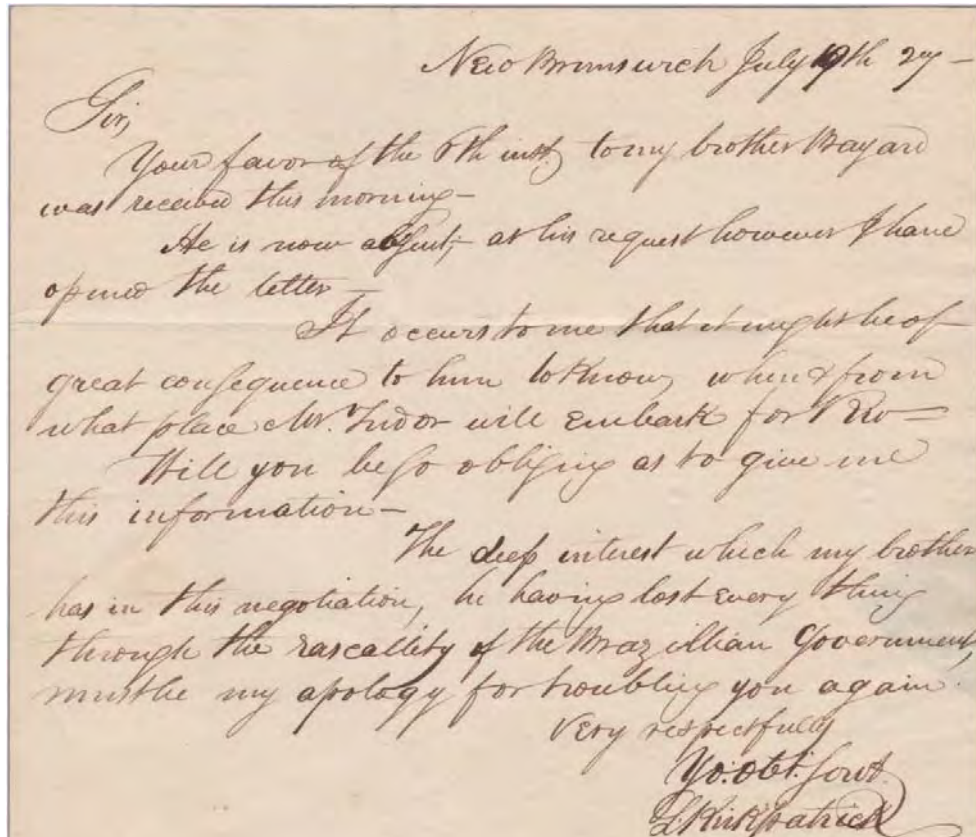 New Brunswick July 19th 27 —
Sir,
Your favor of the 6th inst, to my brother Bayard
was received this morning —
He is now absent; at his request however I have
opened the letter —
It occurs to me that it might be of
great consequence to him to Know, when & from
what place Mr. Tudor will Embark for Rio —
Will you be so obliging as to give me
this information —
The deep interest which my brother
has in this negotiation, he having lost Every thing
through the rascallity of the Brazillian Government,
must be my apology for troubling you again.
Very respectfully
Yo: obt: Servt.
L. Kirkpatrick